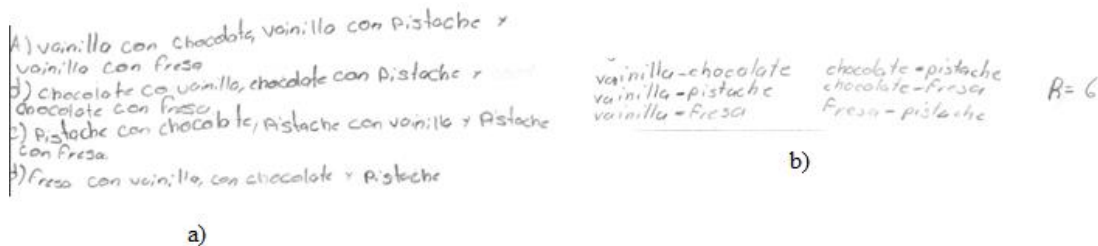 A) vainilla con chocolate, vainilla con pistache y
vainilla con fresa
d) chocolate co vainilla, chocolate con pistache y
chocolate con fresa
c) pistache con chocolate, pistache con vainilla y pistache
con fresa.
d) fresa con vainilla, con chocolate y pistache
a)
vainilla-chocolate
vainilla-pistache
vainilla-fresa
chocolate-pistache
chocolate-fresa
Fresa-pistache
R=6
b)